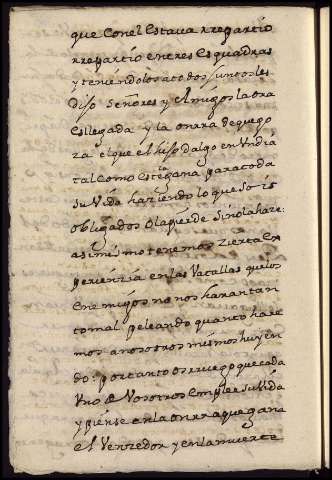 que Conel Estava RRepartio
RRepartio entres Esquadras
y teniendolos atodos Juntos les
dijo Señores y Amigos la ora
Es llegada y la onrra de que go
za el que es hijo dalgo en Un dia
tal Como este gana para toda
su Vida haziendo lo que Sois
obligados O la pierde Sino la haze:
asimismo tenemos Zierta Ex
perienzia en las Vatallas que los
Enemigos no nos haran tan
to mal peleando quanto hare
mos a nosotros mismos huyen
do: por tanto Os ruego que cada
Uno de Vosotros Emplee su Vida
y piense en la onrra que gana
el Venzedor y en la muerte